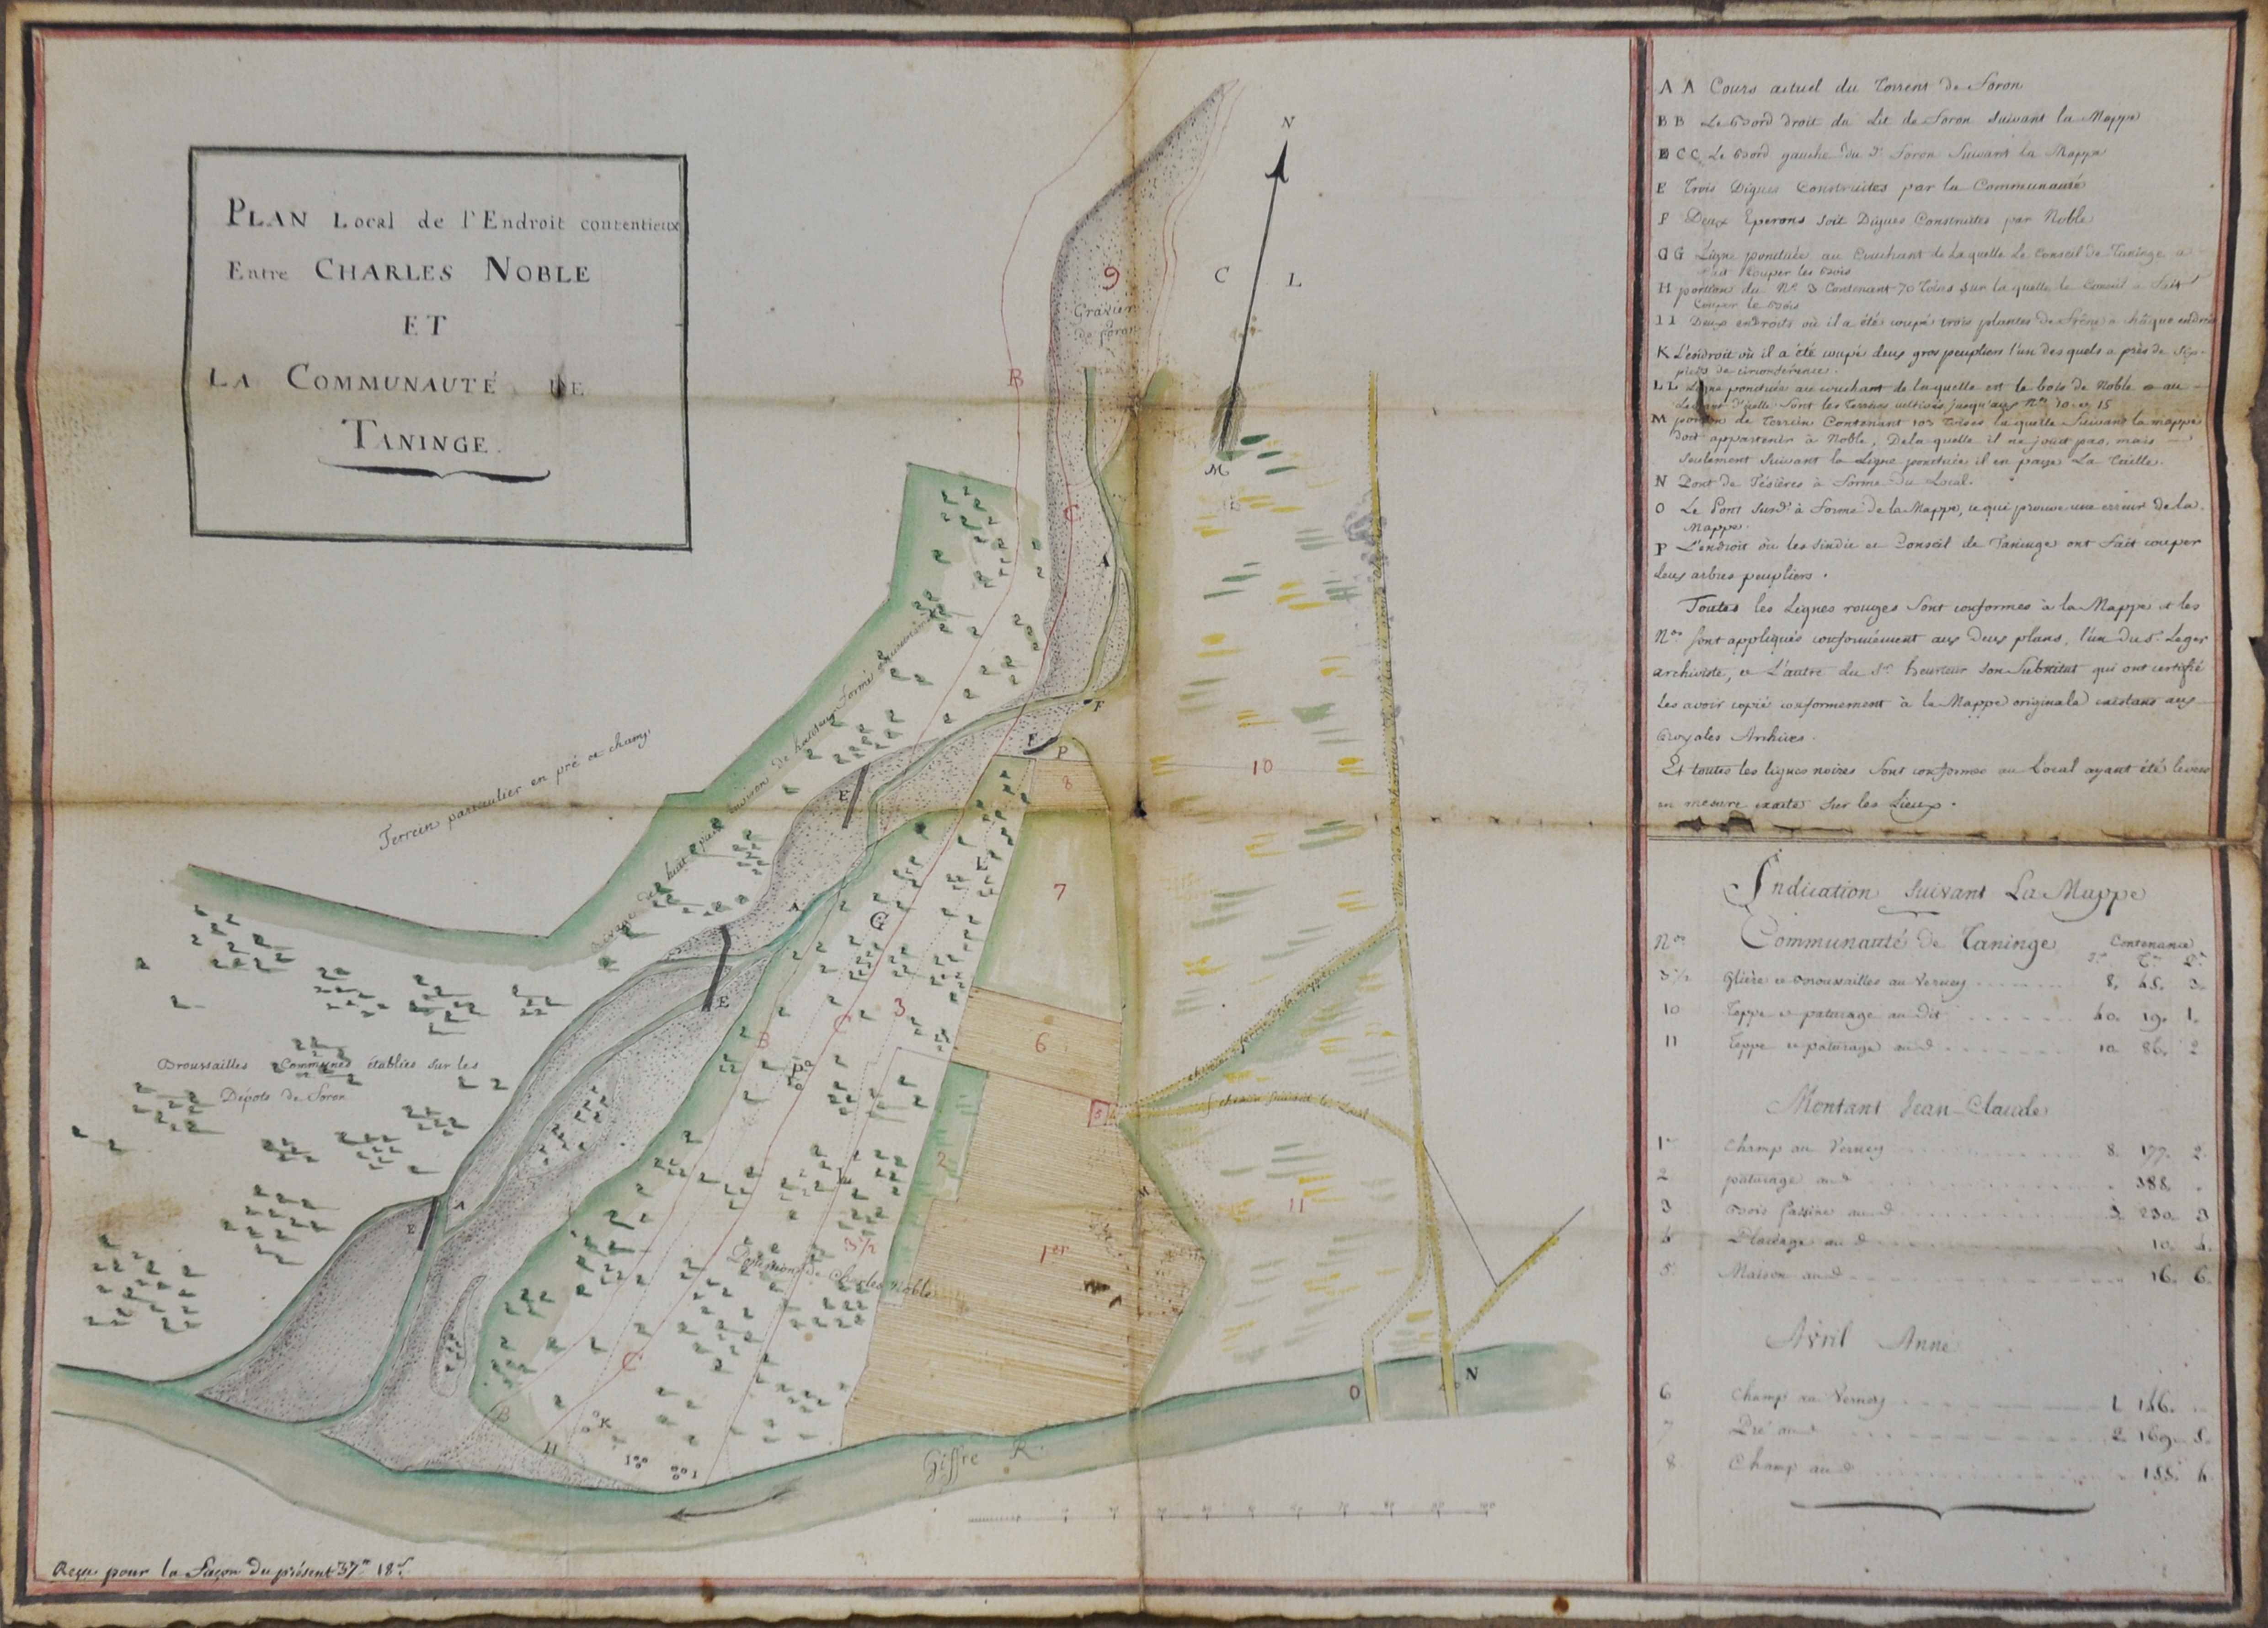 PLAN Local de l'Endroit contentieux
Entre CHARLES NOBLE
ET
LA COMMUNAUTÉ DE
TANINGE.
N
C L
M
9
Gravier
de foron
B
C
A
F
F
P
8
10
7
E
A
G
L
3
E
6
B
C
5
2
11
3 1/2
1er
M
A
E
C
B
H
K
O
N
Terrein particulier en pré et champ
Broussailles Communes établies sur les
Dépots de Foron
Possessions de Charles Noble
chemin suivant le Local
Giffre R.
Reçu pour la Façon du présent 37" 18s
A A Cours actuel du Torrent de Foron
B B Le Bord droit du Lit de Foron Suivant la Mappe
C C Le Bord gauche du d. Foron Suivant la Mappe
E Trois Digues Construites par la Communauté
F Deux Eperons soit Digues Construites par Noble
G G Ligne ponctuée au Couchant de Laquelle Le Conseil de Taninge a
fait Couper les Bois
H portion du No. 3 Contenant 70 Toises Sur la quelle le Conseil a fait
Couper le Bois
I I Deux endroits où il a été coupé trois plantes de Frêne à châque endroit
K L'endroit où il a été coupé deux gros peupliers l'un des quels a près de Six
pieds de circonférence.
L L Ligne ponctuée au couchant de laquelle est le bois de Noble et au
Levant d'icelle Sont les Terreins cultivés jusqu'aux Nos 10 et 15
M portion de Terrein Contenant 103 Toises la quelle Suivant la mappe
doit appartenir à Noble, Dela quelle il ne jouit pas, mais
Seulement Suivant la Ligne ponctuée il en paye La Taille.
N Pont de Tésières à forme du Local.
O Le Pont Surd. à Forme de la Mappe, ce qui prouve une erreur de la
Mappe.
P L'endroit où les Sindic et Conseil de Taninge ont fait couper
deux arbres peupliers.
Toutes les Lignes rouges Sont conformes à la Mappe et les
Nos. sont appliqués conformément aux deux plans, l'un du S. Leger
archiviste, et L'autre du Sr. heurteur Son Substitut qui ont certifié
Les avoir copié conformement à la Mappe originale existant aux
Royales Archives.
Et toutes les lignes noires Sont conformes au Local ayant été levées
en mesure exacte Sur les Lieux.
Indication Suivant La Mappe
Nos. Communauté de Taninge Contenance
3 1/2 Glière et Broussailles au Verney 8. 45. 3.
10 Teppe et paturage au dit 40. 19. 1.
11 Teppe et paturage aud. 10 86. 2
Montant Jean-Claude
1er Champ au Verney 8. 177. 2.
2 paturage aud. 388.
3 Bois Fassine aud. 3 230 3
4 Placéage aud. 10. 4.
5. Maison aud. 16. 6.
Avril Anne
6 Champ au Verney 1 146.
7 Pré aud. 2 169. 5.
8 Champ aud. 155. 4.